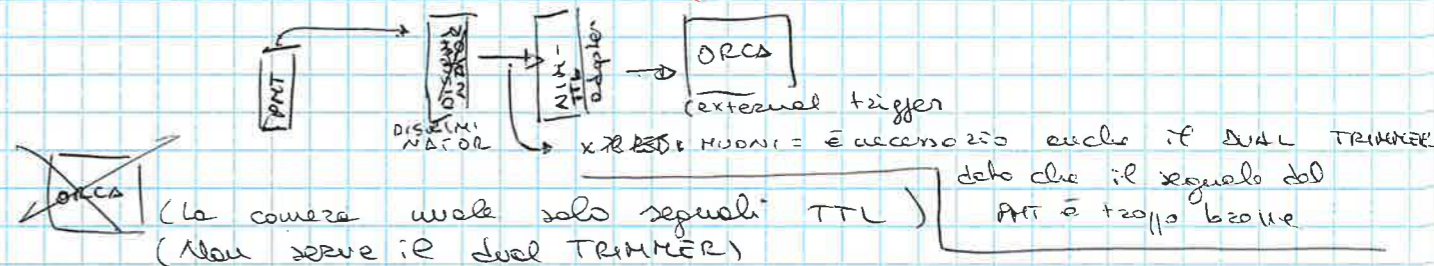 PMT
DISCRIMI
NATOR
NIM -
TTL
adapter
ORCA
(external trigger
x MUONI = è necessario anche il DUAL TRIMMER
dato che il segnale dal
PMT è troppo breve
ORCA
(La camera vuole solo segnali TTL)
(Non serve il dual TRIMMER)